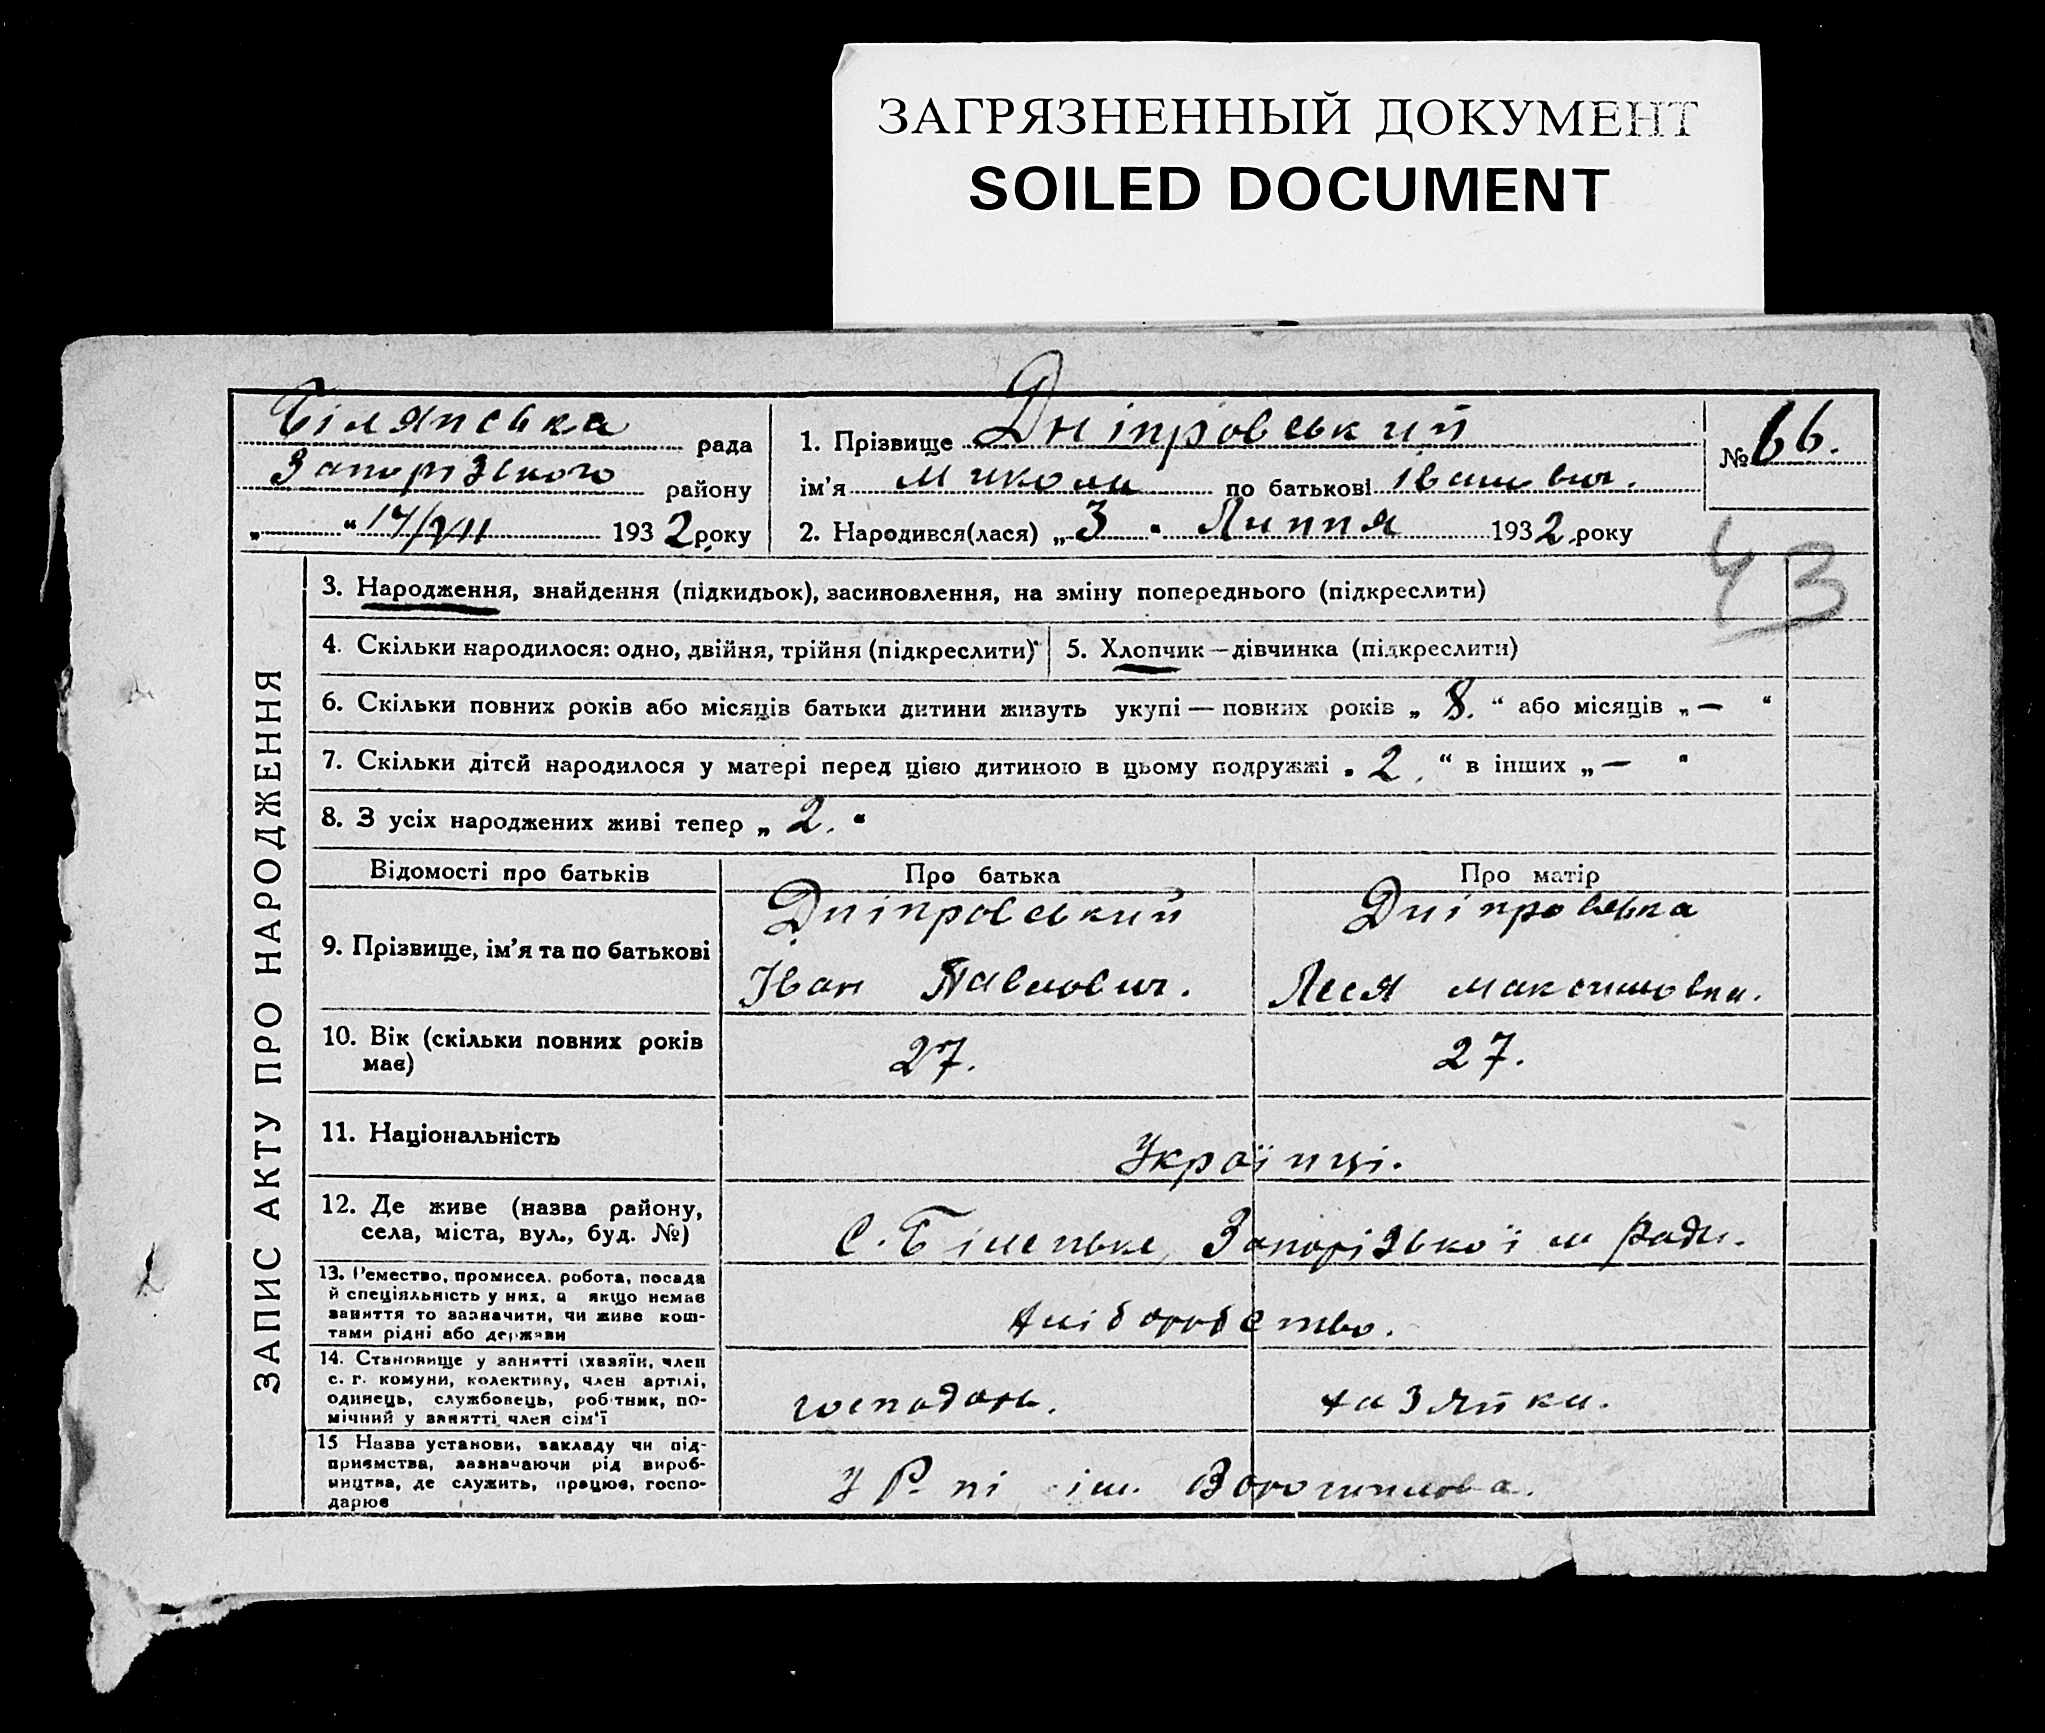 ЗАГРЯЗНЕННЫЙ ДОКУМЕНТ
SOILED DOCUMENT
Білянська рада
Запорізького району
„ “ 17/VII 1932 року
1. Прізвище Дніпровський
ім’я Микола по батькові Іванович.
2. Народився(лася) „3“ Липня 1932 року
№ 66.
43
ЗАПИС АКТУ ПРО НАРОДЖЕННЯ
3. Народження, знайдення (підкидьок), засиновлення, на зміну попереднього (підкреслити)
4. Скільки народилося: одно, двійня, трійня (підкреслити)
5. Хлопчик — дівчинка (підкреслити)
6. Скільки повних років або місяців батьки дитини живуть укупі — повних років „8.“ або місяців „—“
7. Скільки дітей народилося у матері перед цією дитиною в цьому подружжі „2.“ в інших „—“
8. З усіх народжених живі тепер „2.“
Відомості про батьків
Про батька
Про матір
9. Прізвище, ім’я та по батькові
Дніпровський
Іван Павлович.
Дніпровська
Леся Максимовна.
10. Вік (скільки повних років
має)
27.
27.
11. Національність
Українці.
12. Де живе (назва району,
села, міста, вул., буд. №)
С. Біленьке, Запорізької м ради.
13. Ремество, промисел. робота, посада
й спеціяльність у них, а якщо немає
заняття то зазначити, чи живе кош-
тами рідні або держави
хліборобство.
14. Становище у занятті (хазяїн, член
с. г. комуни, колективу, член артілі,
одинець, службовець, робітник, по-
мічний у занятті член сім’ї
господарь.
хазяйка.
15 Назва установи, закладу чи під-
приємства, зазначаючи рід вироб-
ництва, де служить, працює, госпо-
дарює
ім. Ворошилова.